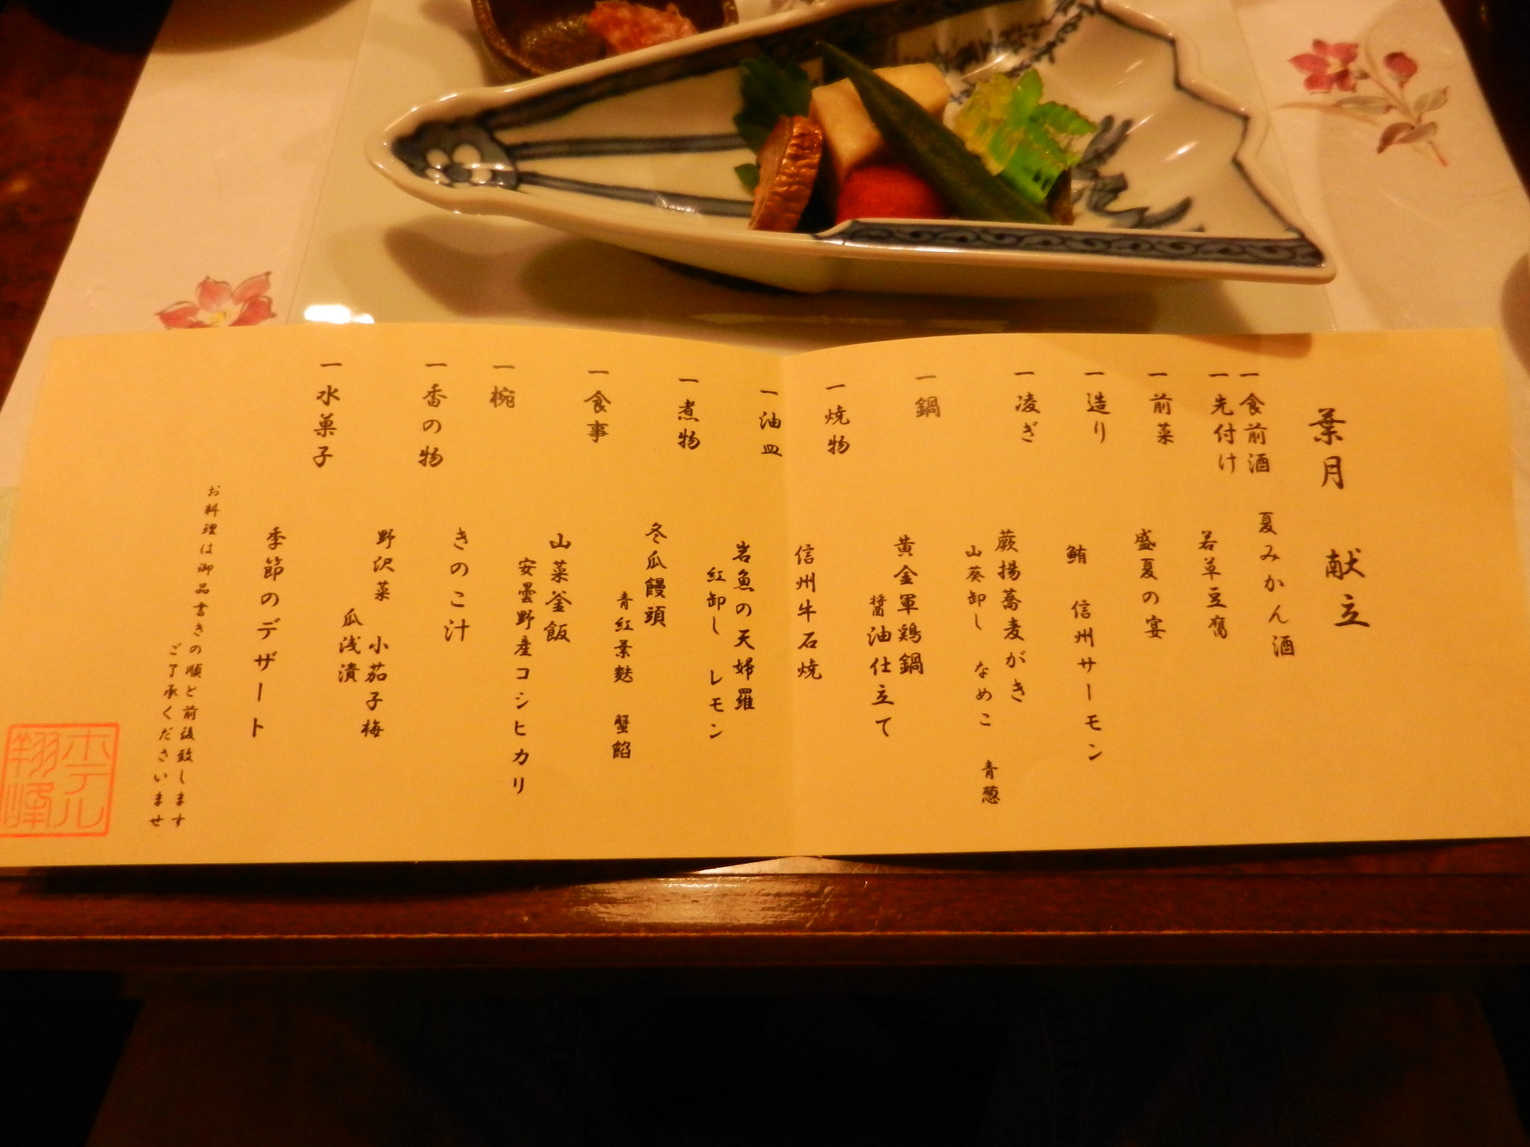 葉月 献立
一食前酒 夏みかん酒
一先付け 若草豆腐
一前菜 盛夏の宴
一造り 鮪 信州サーモン
一凌ぎ 蕨揚蕎麦がき
山葵卸し なめこ 青葱
一鍋 黄金軍鶏鍋
醤油仕立て
一焼物 信州牛石焼
一油皿 岩魚の天婦羅
紅卸し レモン
一煮物 冬瓜饅頭
青紅葉麩 蟹餡
一食事 山菜釜飯
安曇野産コシヒカリ
一椀 きのこ汁
一香の物 野沢菜 小茄子梅
瓜浅漬
一水菓子 季節のデザート
お料理は御品書きの順と前後致します
ご了承くださいませ
ホテル
翔峰